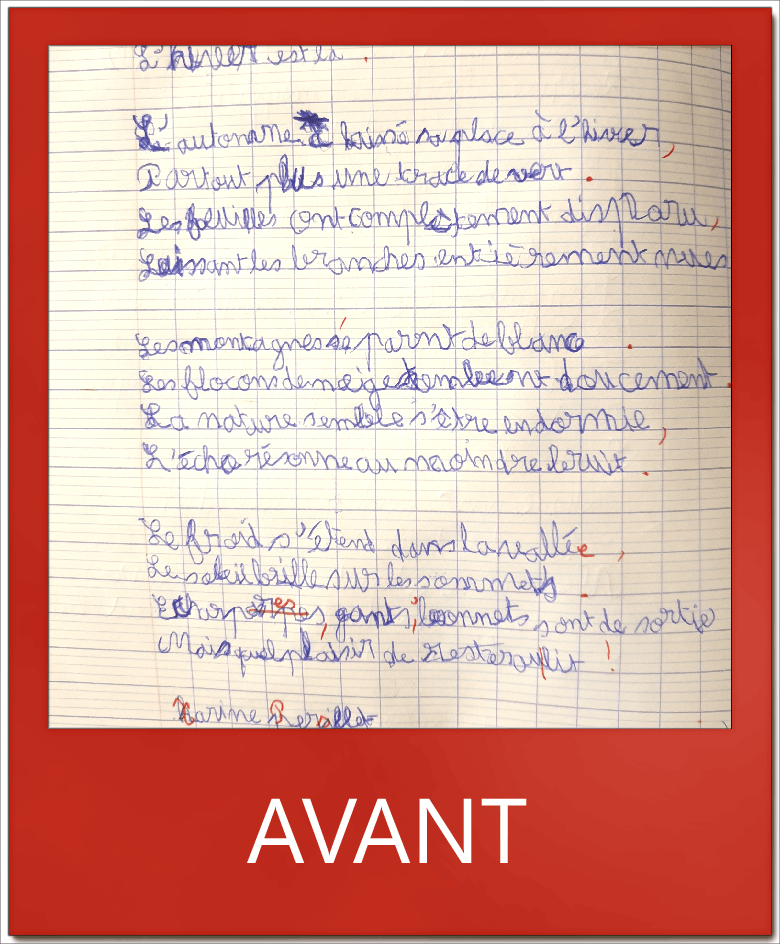 L'hiver est là.
L'automne a laissé sa place à l'hiver,
Partout plus une trace de vert.
Les feuilles ont complètement disparu,
Laissant les branches entièrement nues
Les montagnes se parent de blanc.
Les flocons de neige tombent doucement.
La nature semble s'être endormie,
L'écho résonne au moindre bruit.
Le froid s'étend dans la vallée,
Le soleil brille sur les sommets.
Echarpes, gants, bonnets sont de sortie
Mais quel plaisir de rester au lit !
Karine
AVANT